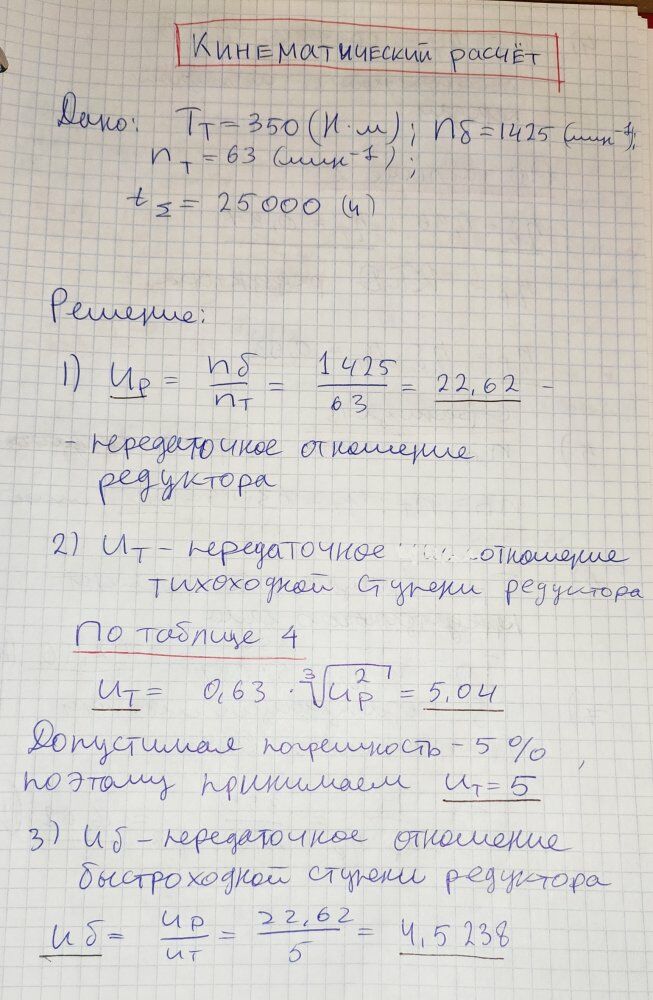 Кинематический расчёт
Дано: Tт = 350 (Н·м); nб = 1425 (мин⁻¹);
nт = 63 (мин⁻¹);
tΣ = 25000 (ч)
Решение:
1) Uр = nб/nт = 1425/63 = 22,62 –
– передаточное отношение
редуктора
2) Uт – передаточное отношение
тихоходной ступени редуктора
По таблице 4
Uт = 0,63 · ∛(Uр²) = 5,04
Допустимая погрешность – 5%,
поэтому принимаем Uт = 5
3) Uб – передаточное отношение
быстроходной ступени редуктора
Uб = Uр/Uт = 22,62/5 = 4,5238